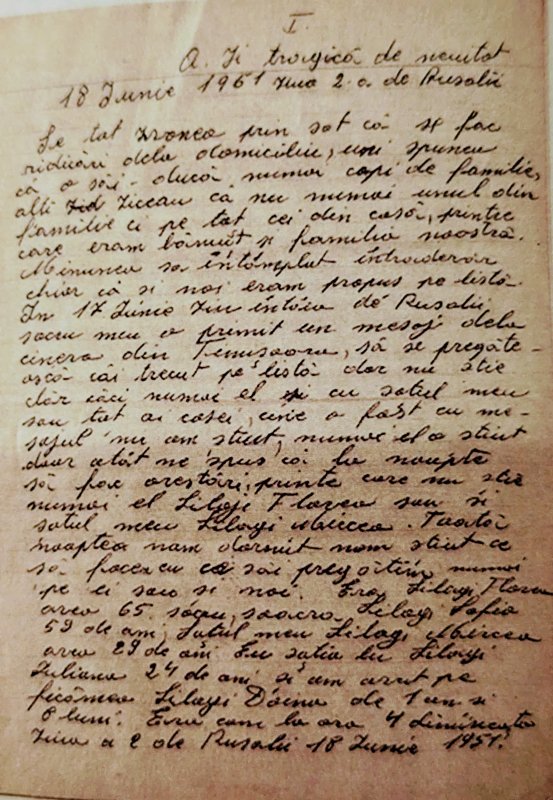 I.
O. Zi tragică de neuitat
18 Iunie 1951 ziua 2.a. de Rusalii
Se tot zvonea prin sat că se fac
ridicări dela domiciliu, uni spuneu
că o săi ducă numai capi de familie,
alti Zid ziceau că nu numai unul din
familie ci pe tot cei din casă, printre
care eram bănuit și familia noastră.
Minunea sa întâmplat întradevăr
chiar că si noi eram propus pe listă
In 17 Iunie ziu întâia de Rusalii
socru meu a primit un mesaj dela
cineva din Timisoara, să se pregăte-
ască căi trecut pe listă dar nu stie
clăr căci numai el si cu sotul meu
sau tot ai casei, cine a fost cu me-
sajul nu am stiut, numai el a stiut
doar atât ne spus că la noapte
să fac arestări, printe care nu stie
numai el Silagi Florea sau si
sotul meu Silagi Mircea. Toată
noaptea nam dormit nam stiut ce
să facem cu ce săi pregătim numai
pe ei sau si noi. Era Silagi Florea
avea 65. socru, soacra Silagi Sofia
59 de ani, Sotul meu Silagi Mircea
avea 29 de ani Eu sotia lu Silagi
Iuliana 24 de ani si am avut pe
ficâmea Silagi Doina de 1 an si
8 luni. Era cam la ora 4 dimineata
ziua a 2 de Rusalii 18 Iunie 1951.